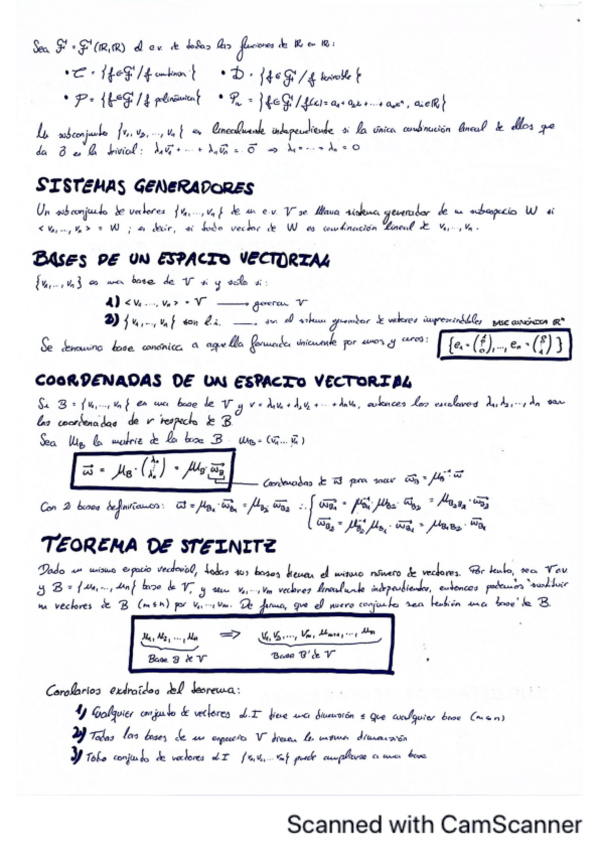 Sea F = F(ℝ,ℝ) el e.v. de todas las funciones de ℝ en ℝ:
• C = {f∈F / f continua} • D = {f∈F / f derivable}
• P = {f∈F / f polinómica} • Pₙ = {f∈F / f(x) = a₀ + a₁x + ... + aₙxⁿ, aᵢ∈ℝ}
Un subconjunto {v₁, v₂, ..., vₙ} es linealmente independiente si la única combinación lineal de ellos que
da 0 es la trivial: λ₁v₁ + ... + λₙvₙ = 0 ⇒ λ₁ = ... = λₙ = 0
SISTEMAS GENERADORES
Un subconjunto de vectores {v₁, ..., vₙ} de un e.v. V se llama sistema generador de un subespacio W si
<v₁, ..., vₙ> = W ; es decir, si todo vector de W es combinación lineal de v₁, ..., vₙ.
BASES DE UN ESPACIO VECTORIAL
{v₁, ..., vₙ} es una base de V si y solo si:
1) <v₁, ..., vₙ> = V ⟶ generan V
2) {v₁, ..., vₙ} son l.i. ⟶ son el sistema generador de vectores imprescindibles BASE CANÓNICA ℝⁿ
Se denomina base canónica a aquella formada únicamente por unos y ceros: {e₁ = (1 0), ..., eₙ = (0 1)}
COORDENADAS DE UN ESPACIO VECTORIAL
Si B = {v₁, ..., vₙ} es una base de V y v = λ₁v₁ + λ₂v₂ + ... + λₙvₙ, entonces los escalares λ₁, λ₂, ..., λₙ son
las coordenadas de v respecto de B.
Sea M_B la matriz de la base B M_B = (v₁ ... vₙ)
w = M_B · (λ₁ ⋮ λₙ) = M_B · w_B
Coordenadas de w para sacar w_B = M_B⁻¹ · w
Con 2 bases definiríamos: w = M_B₁ · w_B₁ = M_B₂ · w_B₂ ∴ { w_B₁ = M_B₁⁻¹ M_B₂ · w_B₂ = M_B₂B₁ · w_B₂
w_B₂ = M_B₂⁻¹ M_B₁ · w_B₁ = M_B₁B₂ · w_B₁
TEOREMA DE STEINITZ
Dado un mismo espacio vectorial, todas sus bases tienen el mismo número de vectores. Por tanto, sea V e.v.
y B = {u₁, ..., uₙ} base de V, y sean v₁, ..., vₘ vectores linealmente independientes, entonces podemos sustituir
m vectores de B (m≤n) por v₁, ..., vₘ. De forma, que el nuevo conjunto sea también una base de B.
u₁, u₂, ..., uₙ ⇒ v₁, v₂, ..., vₘ, uₘ₊₁, ..., uₙ
Base B de V Base B' de V
Corolarios extraídos del teorema:
1) Cualquier conjunto de vectores L.I tiene una dimensión ≤ que cualquier base (m≤n)
2) Todas las bases de un espacio V tienen la misma dimensión
3) Todo conjunto de vectores L.I {v₁, v₂, ... vₘ} puede ampliarse a una base
Scanned with CamScanner